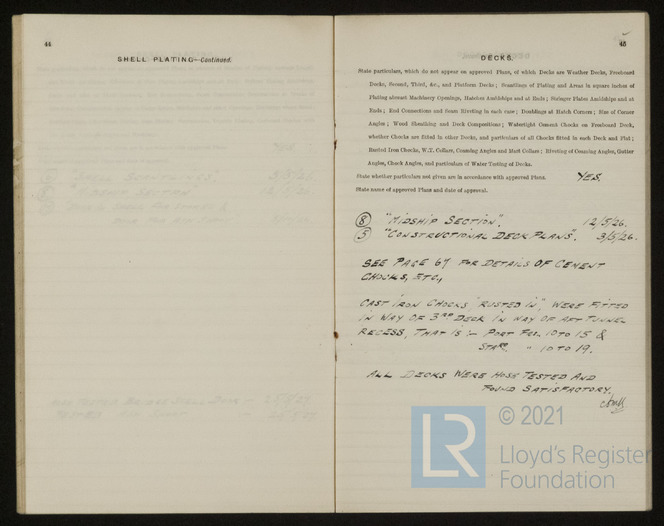 44
SHELL PLATING—Continued.
45
DECKS.
State particulars, which do not appear on approved Plans, of which Decks are Weather Decks, Freeboard
Decks, Second, Third, &c., and Platform Decks; Scantlings of Plating and Areas in square inches of
Plating abreast Machinery Openings, Hatches Amidships and at Ends; Stringer Plates Amidships and at
Ends; End Connections and Seam Riveting in each case; Doublings at Hatch Corners; Size of Corner
Angles; Wood Sheathing and Deck Compositions; Watertight Cement Chocks on Freeboard Deck,
whether Chocks are fitted in other Decks, and particulars of all Chocks fitted in each Deck and Flat;
Rusted Iron Chocks, W.T. Collars, Coaming Angles and Mast Collars; Riveting of Coaming Angles, Gutter
Angles, Chock Angles, and particulars of Water Testing of Decks.
State whether particulars not given are in accordance with approved Plans. YES.
State name of approved Plans and date of approval.
8 "MIDSHIP SECTION". 12/5/26.
5 "CONSTRUCTIONAL DECK PLANS". 3/5/26.
SEE PAGE 67 FOR DETAILS OF CEMENT
CHOCKS, ETC.,
CAST IRON CHOCKS "RUSTED IN", WERE FITTED
IN WAY OF 3RD DECK IN WAY OF AFT TUNNEL
RECESS, THAT IS :- PORT FRS. 10 TO 15 &
STARB. " 10 TO 19.
ALL DECKS WERE HOSE TESTED AND
FOUND SATISFACTORY.
LR
© 2021
Lloyd's Register
Foundation